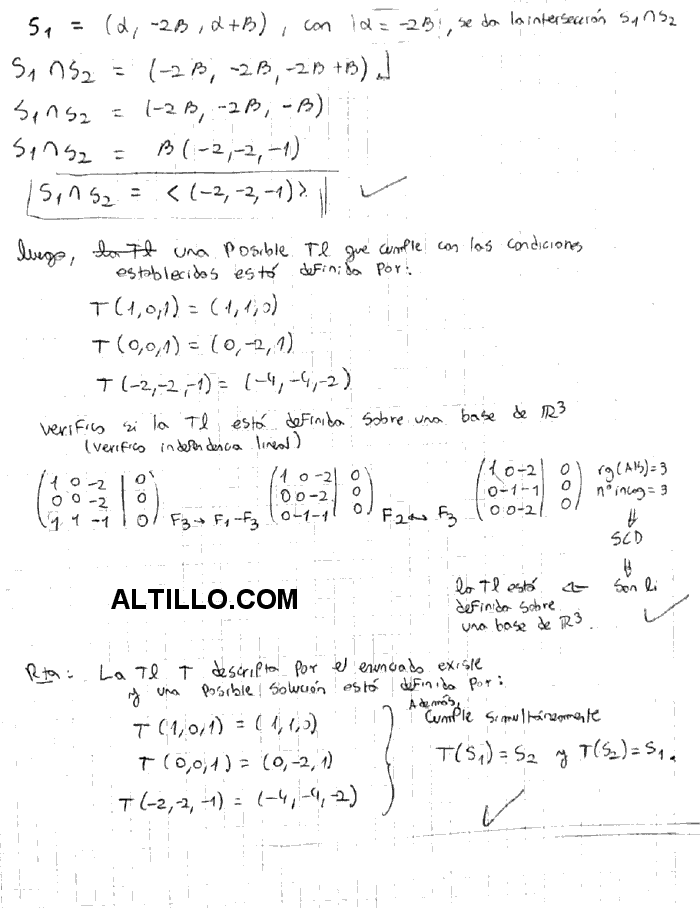 S₁ = (α, -2β, α+β), con |α = -2β|, se da la intersección S₁∩S₂
S₁∩S₂ = (-2β, -2β, -2β+β)
S₁∩S₂ = (-2β, -2β, -β)
S₁∩S₂ = β(-2,-2,-1)
S₁∩S₂ = <(-2,-2,-1)>
luego, la Tl una posible Tl que cumple con las condiciones
establecidas está definida por:
T(1,0,1) = (1,1,0)
T(0,0,1) = (0,-2,1)
T(-2,-2,-1) = (-4,-4,-2)
verifico si la Tl está definida sobre una base de ℝ³
(verifico independencia lineal)
(1 0 -2 | 0) (1 0 -2 | 0) (1 0 -2 | 0) rg(A|b)=3
(0 0 -2 | 0) (0 0 -2 | 0) (0 -1 -1 | 0) n° incog = 3
(1 1 -1 | 0) F₃→F₁-F₃ (0 -1 -1 | 0) F₂↔F₃ (0 0 -2 | 0) ⇓
SCD
⇓
la Tl está ⇐ Son li
definida sobre
una base de ℝ³.
ALTILLO.COM
Rta: La Tl T descripta por el enunciado existe
y una posible solución está definida por:
Además,
cumple simultáneamente
T(1,0,1) = (1,1,0)
T(S₁)=S₂ y T(S₂)=S₁.
T(0,0,1) = (0,-2,1)
T(-2,-2,-1) = (-4,-4,-2)